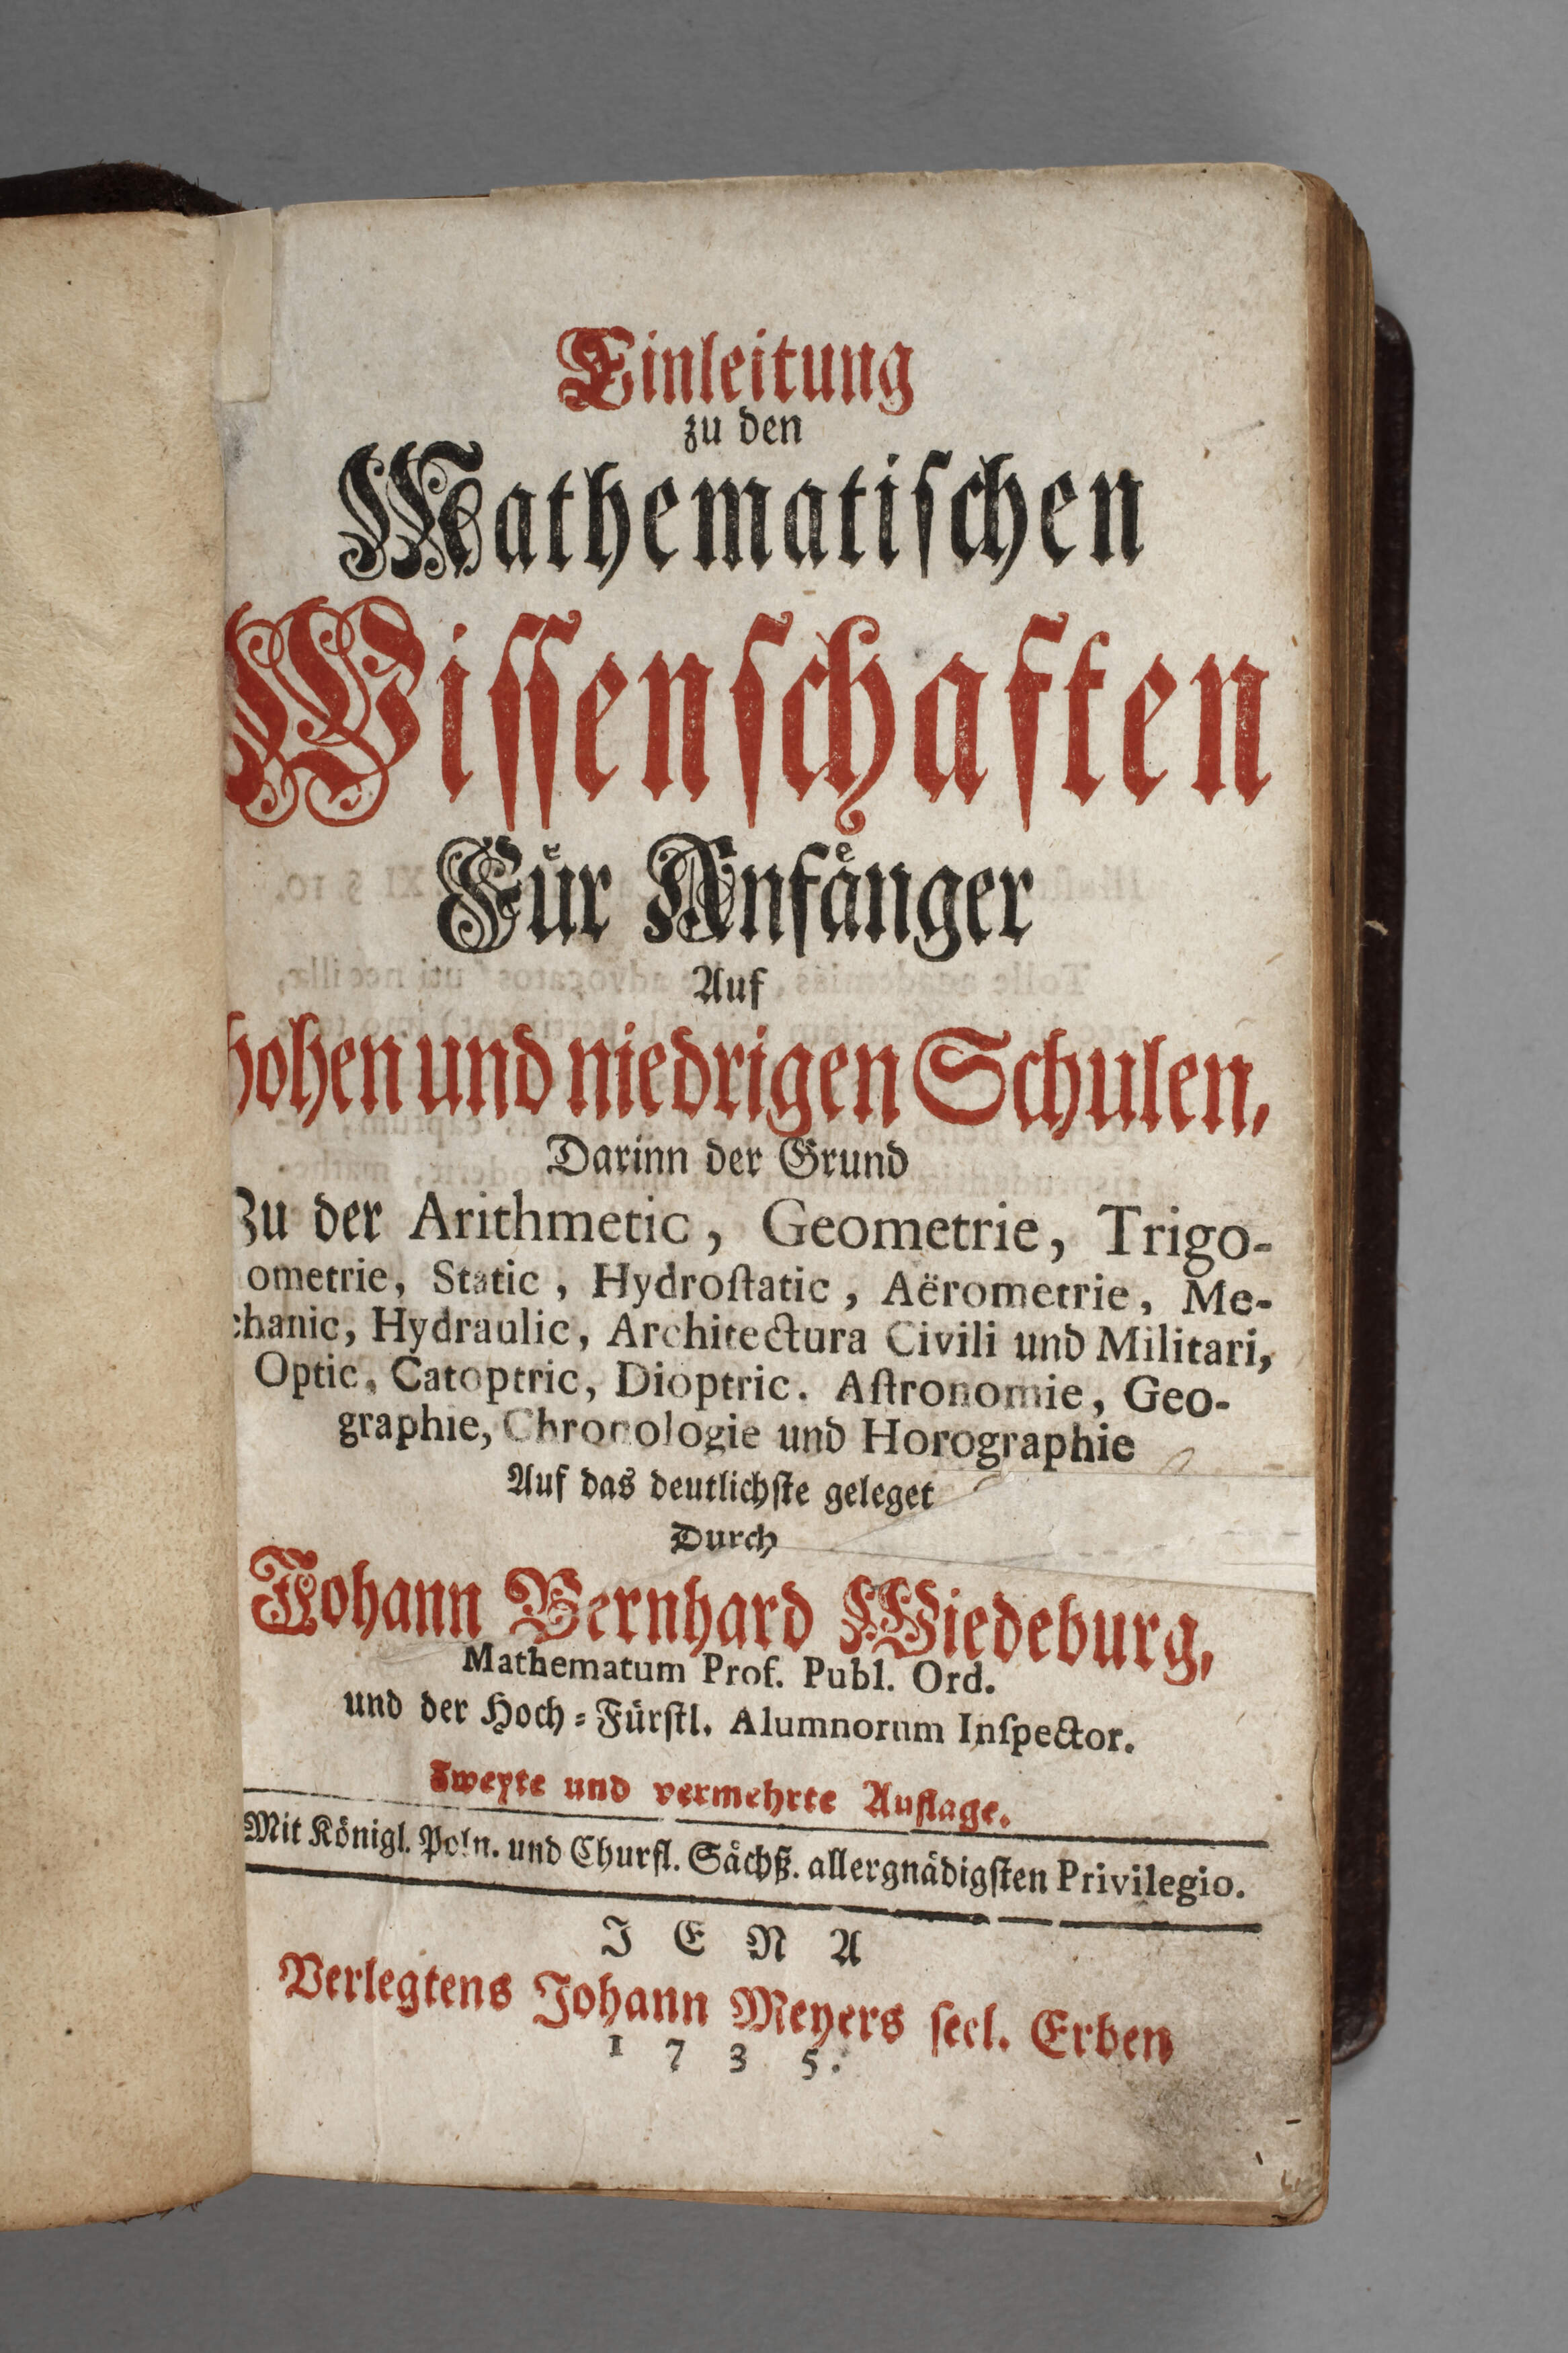 Einleitung
zu den
Mathematischen
Wissenschaften
Für Anfänger
Auf
hohen und niedrigen Schulen,
Darinn der Grund
Zu der Arithmetic, Geometrie, Trigo-
ometrie, Static, Hydrostatic, Aërometrie, Me-
chanic, Hydraulic, Architectura Civili und Militari,
Optic, Catoptric, Dioptric. Astronomie, Geo-
graphie, Chronologie und Horographie
Auf das deutlichste geleget
Durch
Johann Bernhard Wiedeburg,
Mathematum Prof. Publ. Ord.
und der Hoch-Fürstl. Alumnorum Inspector.
Zweyte und vermehrte Auflage.
Mit Königl. Poln. und Churfl. Sächß. allergnädigsten Privilegio.
JENA
Verlegtens Johann Meyers seel. Erben
1735.